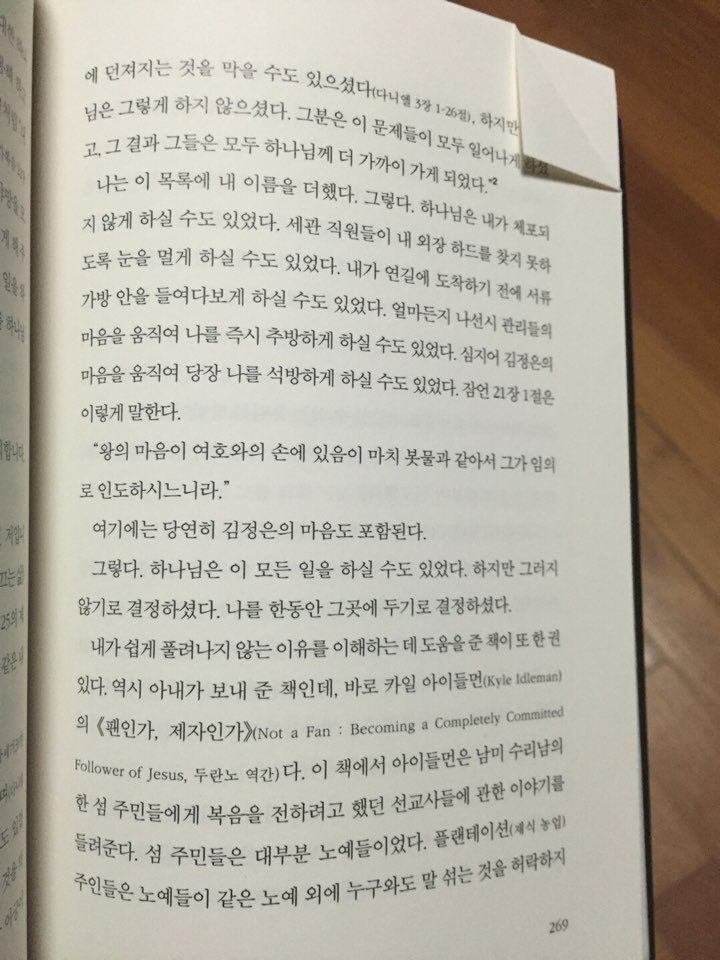 에 던져지는 것을 막을 수도 있으셨다(다니엘 3장 1-26절), 하지만
님은 그렇게 하지 않으셨다. 그분은 이 문제들이 모두 일어나게 하셨
고, 그 결과 그들은 모두 하나님께 더 가까이 가게 되었다."2
나는 이 목록에 내 이름을 더했다. 그렇다. 하나님은 내가 체포되
지 않게 하실 수도 있었다. 세관 직원들이 내 외장 하드를 찾지 못하
도록 눈을 멀게 하실 수도 있었다. 내가 연길에 도착하기 전에 서류
가방 안을 들여다보게 하실 수도 있었다. 얼마든지 나선시 관리들의
마음을 움직여 나를 즉시 추방하게 하실 수도 있었다. 심지어 김정은의
마음을 움직여 당장 나를 석방하게 하실 수도 있었다. 잠언 21장 1절은
이렇게 말한다.
“왕의 마음이 여호와의 손에 있음이 마치 봇물과 같아서 그가 임의
로 인도하시느니라.”
여기에는 당연히 김정은의 마음도 포함된다.
그렇다. 하나님은 이 모든 일을 하실 수도 있었다. 하지만 그러지
않기로 결정하셨다. 나를 한동안 그곳에 두기로 결정하셨다.
내가 쉽게 풀려나지 않는 이유를 이해하는 데 도움을 준 책이 또 한 권
있다. 역시 아내가 보내 준 책인데, 바로 카일 아이들먼(Kyle Idleman)
의 《팬인가, 제자인가》(Not a Fan : Becoming a Completely Committed
Follower of Jesus, 두란노 역간)다. 이 책에서 아이들먼은 남미 수리남의
한 섬 주민들에게 복음을 전하려고 했던 선교사들에 관한 이야기를
들려준다. 섬 주민들은 대부분 노예들이었다. 플랜테이션(재식 농업)
주인들은 노예들이 같은 노예 외에 누구와도 말 섞는 것을 허락하지
269